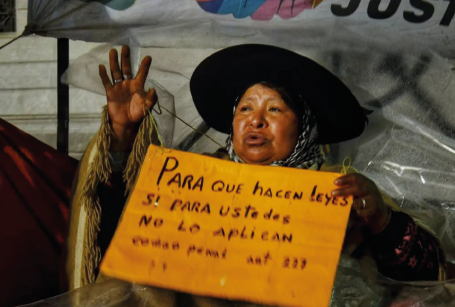 JUST
PARA QUE HACEN LEYES
SI PARA USTEDES
NO LO APLICAN
codigo penal art 227